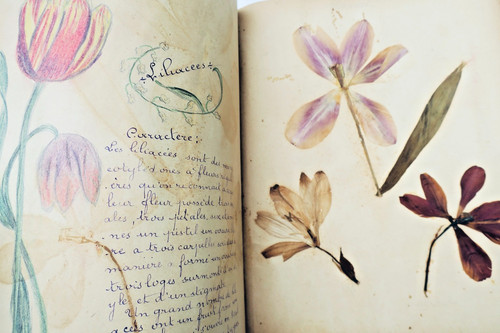 Liliacées
Caractère:
Les liliacées sont des mo
cotylédones à fleurs
ères qu'on reconnaît
leur fleur possède trois
ales, trois pétales,
nes un pistil
re à trois carpelles
manière à former
trois loges surmonté
yle et d'un stigmate
Un grand nombre de
acées ont un fruit